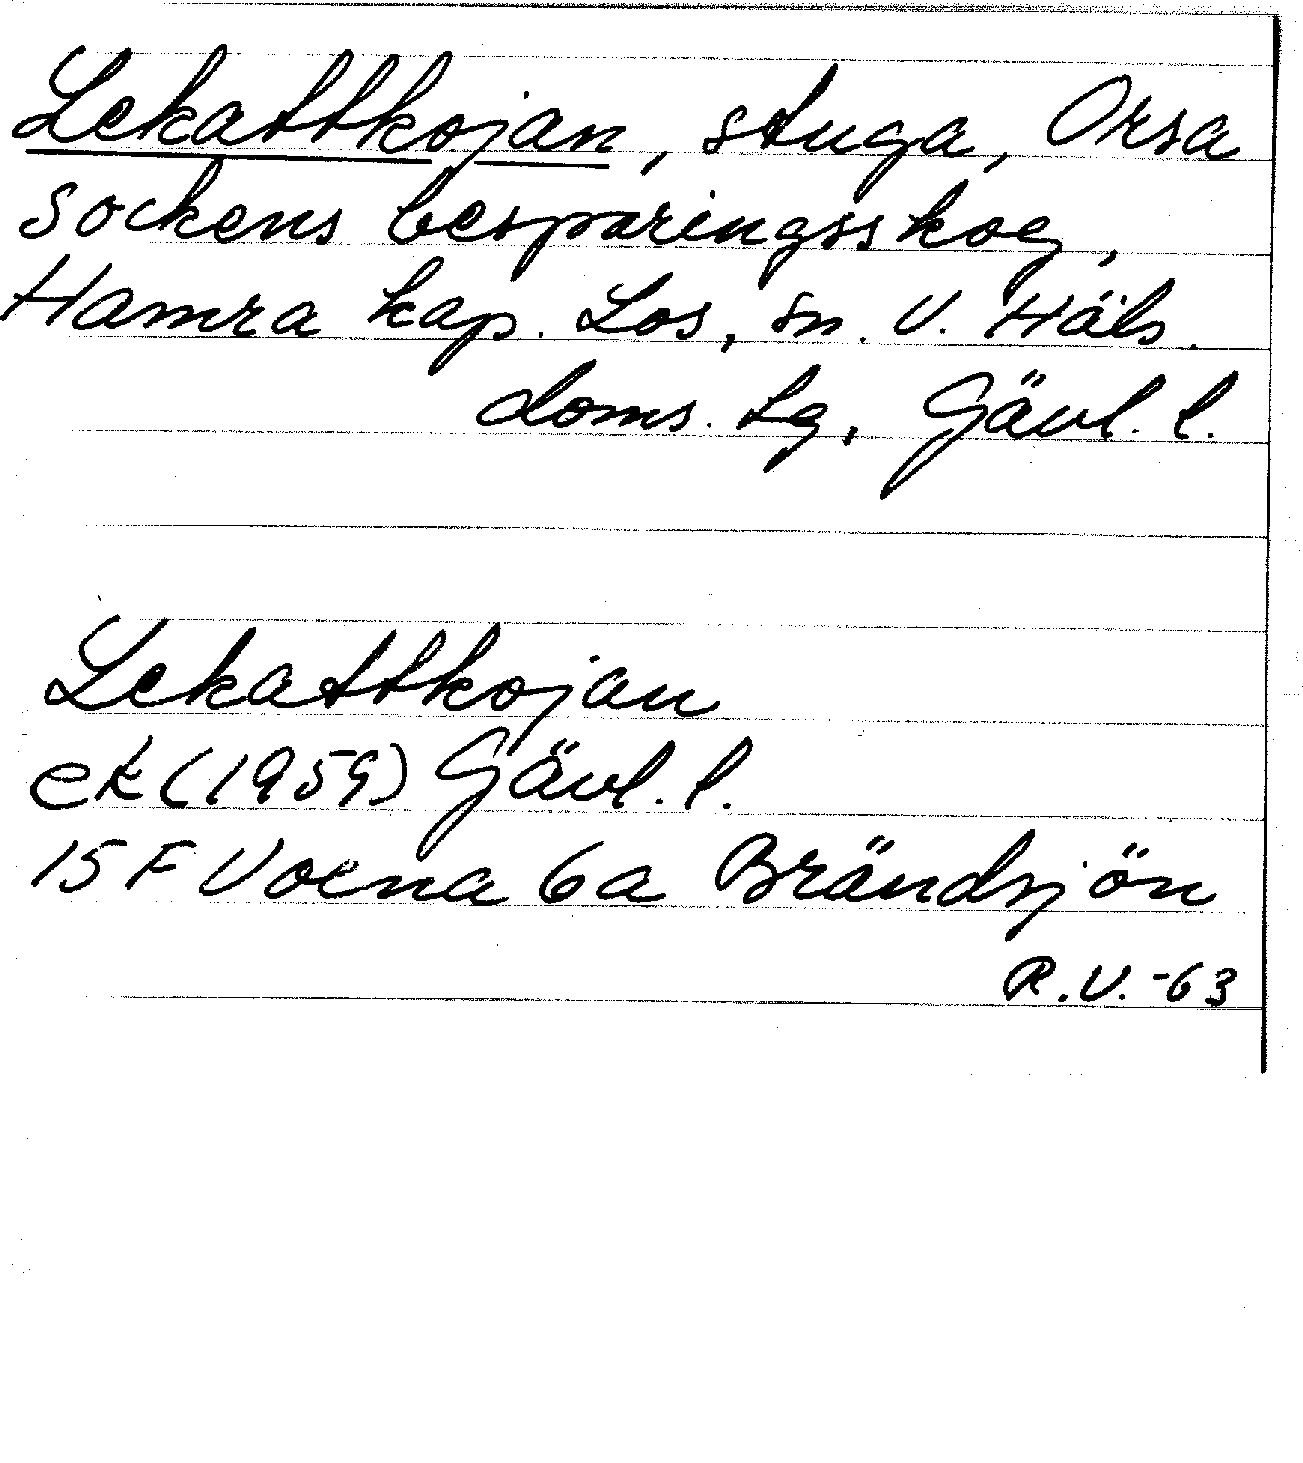 Lekattkojan, stuga, Orsa
sockens besparingsskog,
Hamra kap. Los, sn. V. Häls.
doms. lg, Gävl. l.
Lekattkojan
ek (1959) Gävl. l.
15 F Voxna 6a Brändsjön
R.V. -63